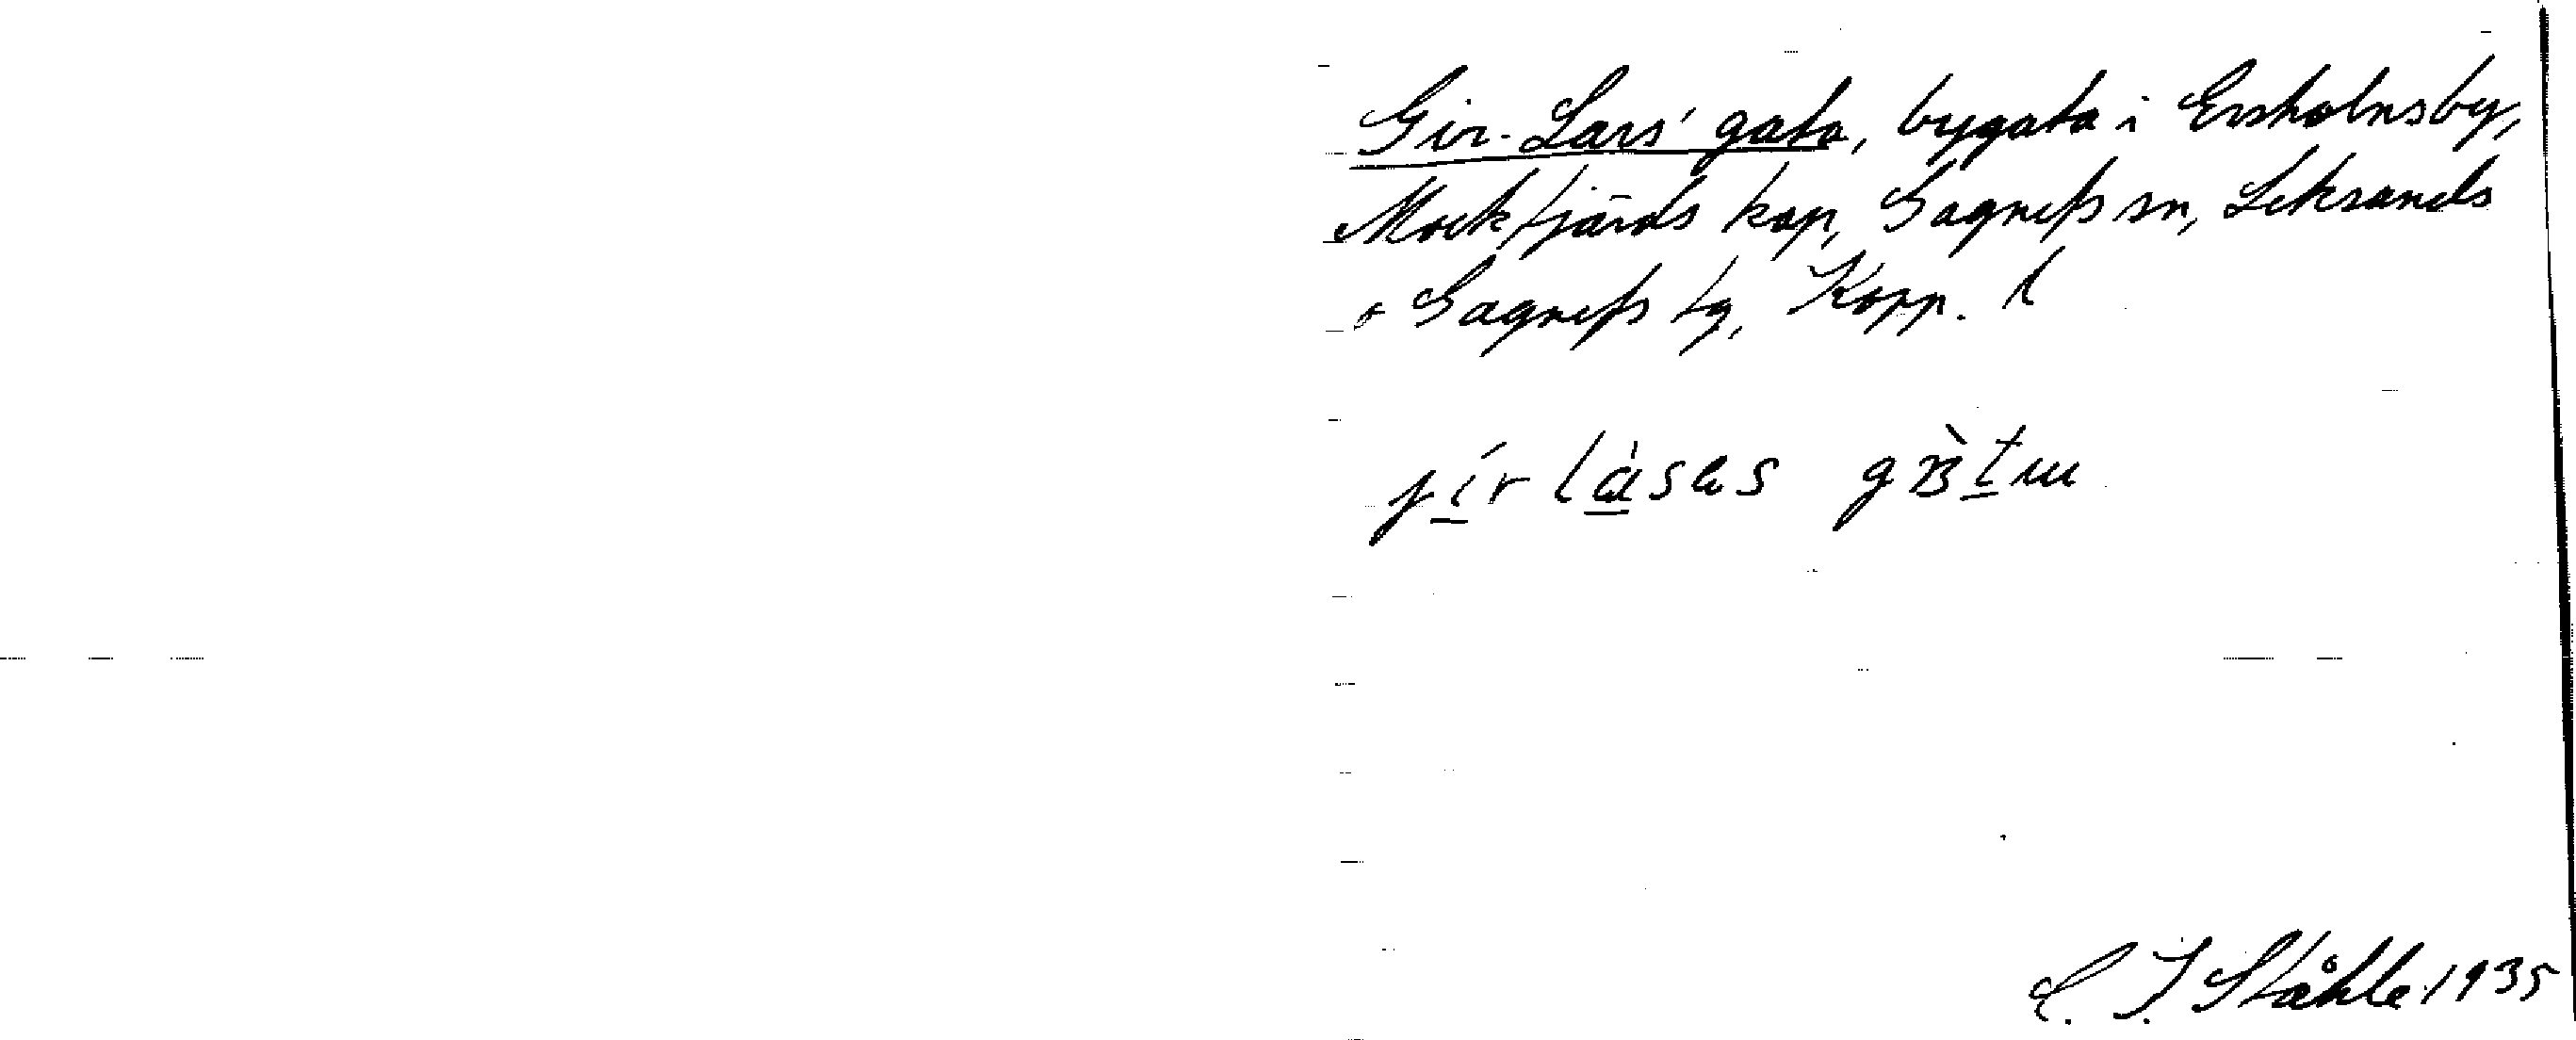 Gir-Lars' gata, bygata i Ersholnsby,
Mockfjärds kap, Gagnefs sn, Leksands
o Gagnefs tg, Kopp. l
jír láses gàtu
C. I Ståhle 1935